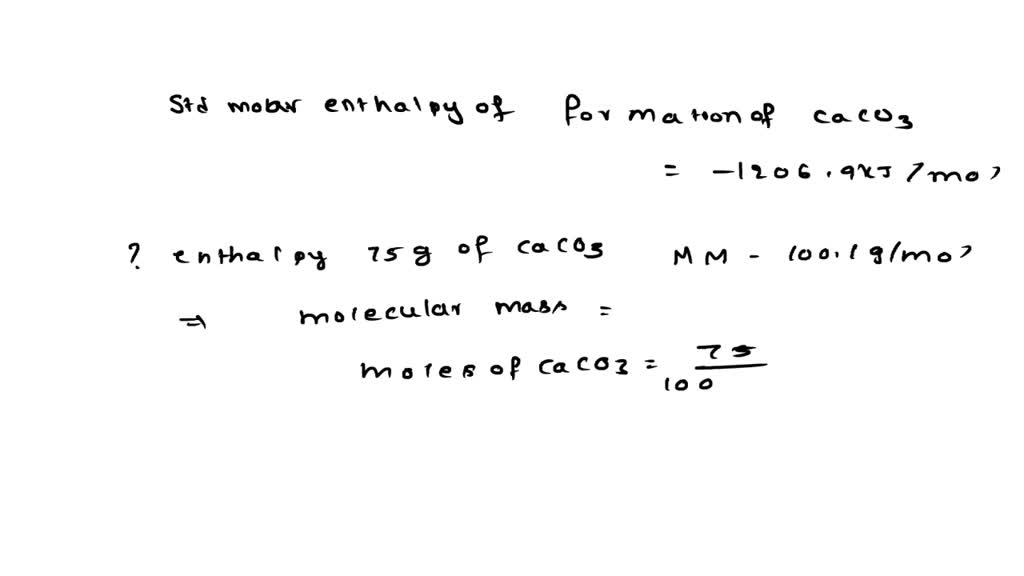 Std molar enthalpy of formation of CaCO3
= -1206.9KJ/mol
? enthalpy 75g of CaCO3 MM - 100.1g/mol
⇒ molecular mass =
moles of CaCO3 = 75
100